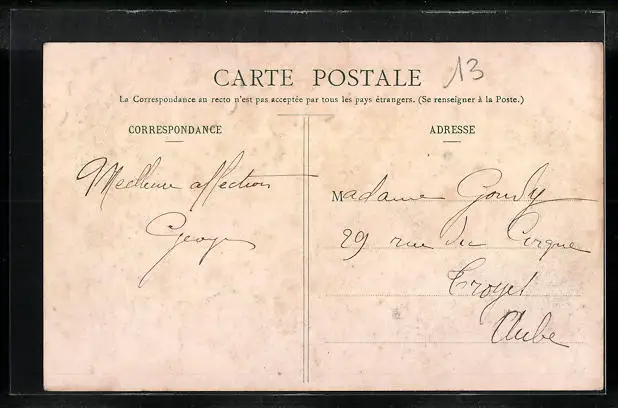 CARTE POSTALE
13
La Correspondance au recto n'est pas acceptée par tous les pays étrangers. (Se renseigner à la Poste.)
CORRESPONDANCE
Meilleure affection
Georges
ADRESSE
Madame Goudy
29 rue du Cirque
Troyes
Aube